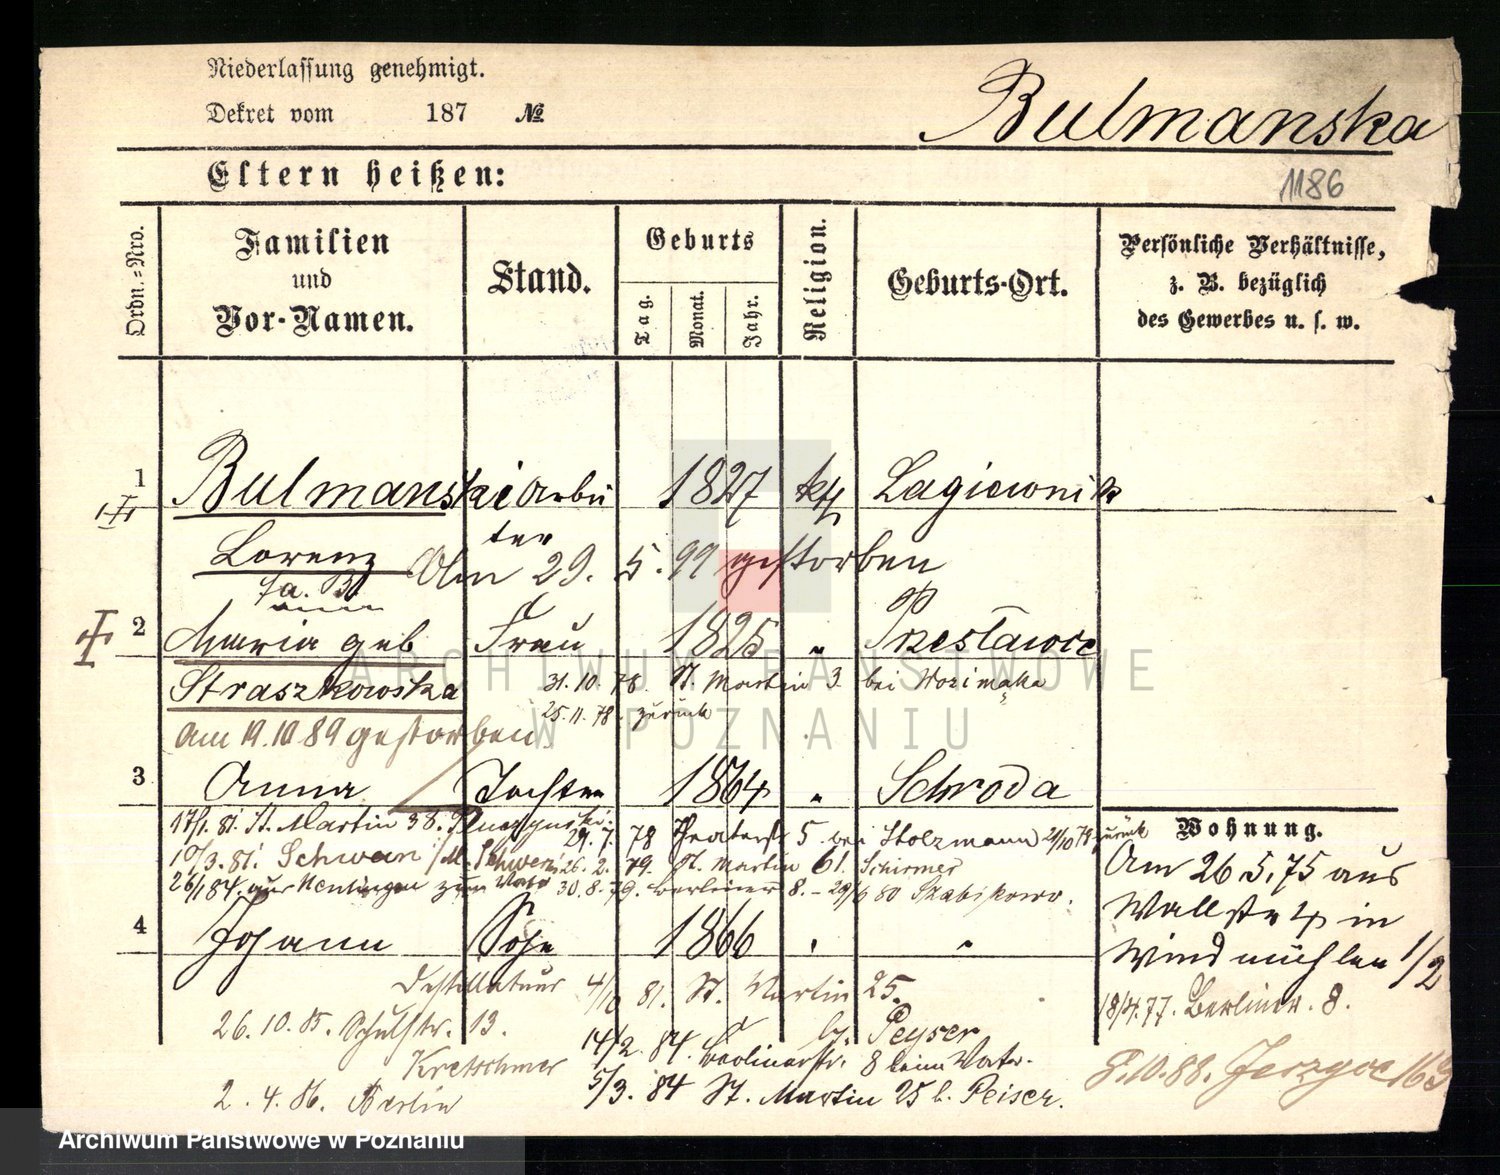 Niederlassung genehmigt.
Dekret vom 187 №
Bulmanska
Eltern heißen:
1186
Ordn.-Nro.
Familien
und
Vor-Namen.
Stand.
Geburts
Tag.
Monat.
Jahr.
Religion.
Geburts-Ort.
Persönliche Verhältnisse,
z. B. bezüglich
des Gewerbes u. s. w.
1 Bulmanski Arbei 1827 kth Lagiewnik
ter
Lorenz Am 29. 5. 99 gestorben
2 Maria geb Frau 1825 " Przestawic
Straszkowska 31.10.78. St. Martin 3. bei Wozimska
25.11.78. zurück
Am 19.10.89 gestorben
3 Anna Tochter 1864 " Schroda
17/1.81. St. Martin 38. 29.7.78 Theaterstr 5. bei Stolzmann 21/10 78 zurück
10/3.81. Schwan 26.2.79. St. Martin 61. Schirmer
26/1 84. aus zum Vater 30.8.79. Berliner 8. - 29/6 80
4 Johann Sohn 1866 " "
Destillateur 4/ 81. St. Martin 25.
26.10.85. Schulstr. 13. b. Peyser
Kretschmer 14/2.84. Berlinerstr. 8 beim Vater.
2.4.86. Berlin 5/3.84 St. Martin 25 b. Peiser.
Wohnung.
Am 26 5.75 aus
Wallstr 4 in
Windmühlen 1/2
18/4.77. Berliner. 8.
8.10.88. Jerzyce 163
ARCHIWUM PAŃSTWOWE
W POZNANIU
Archiwum Państwowe w Poznaniu